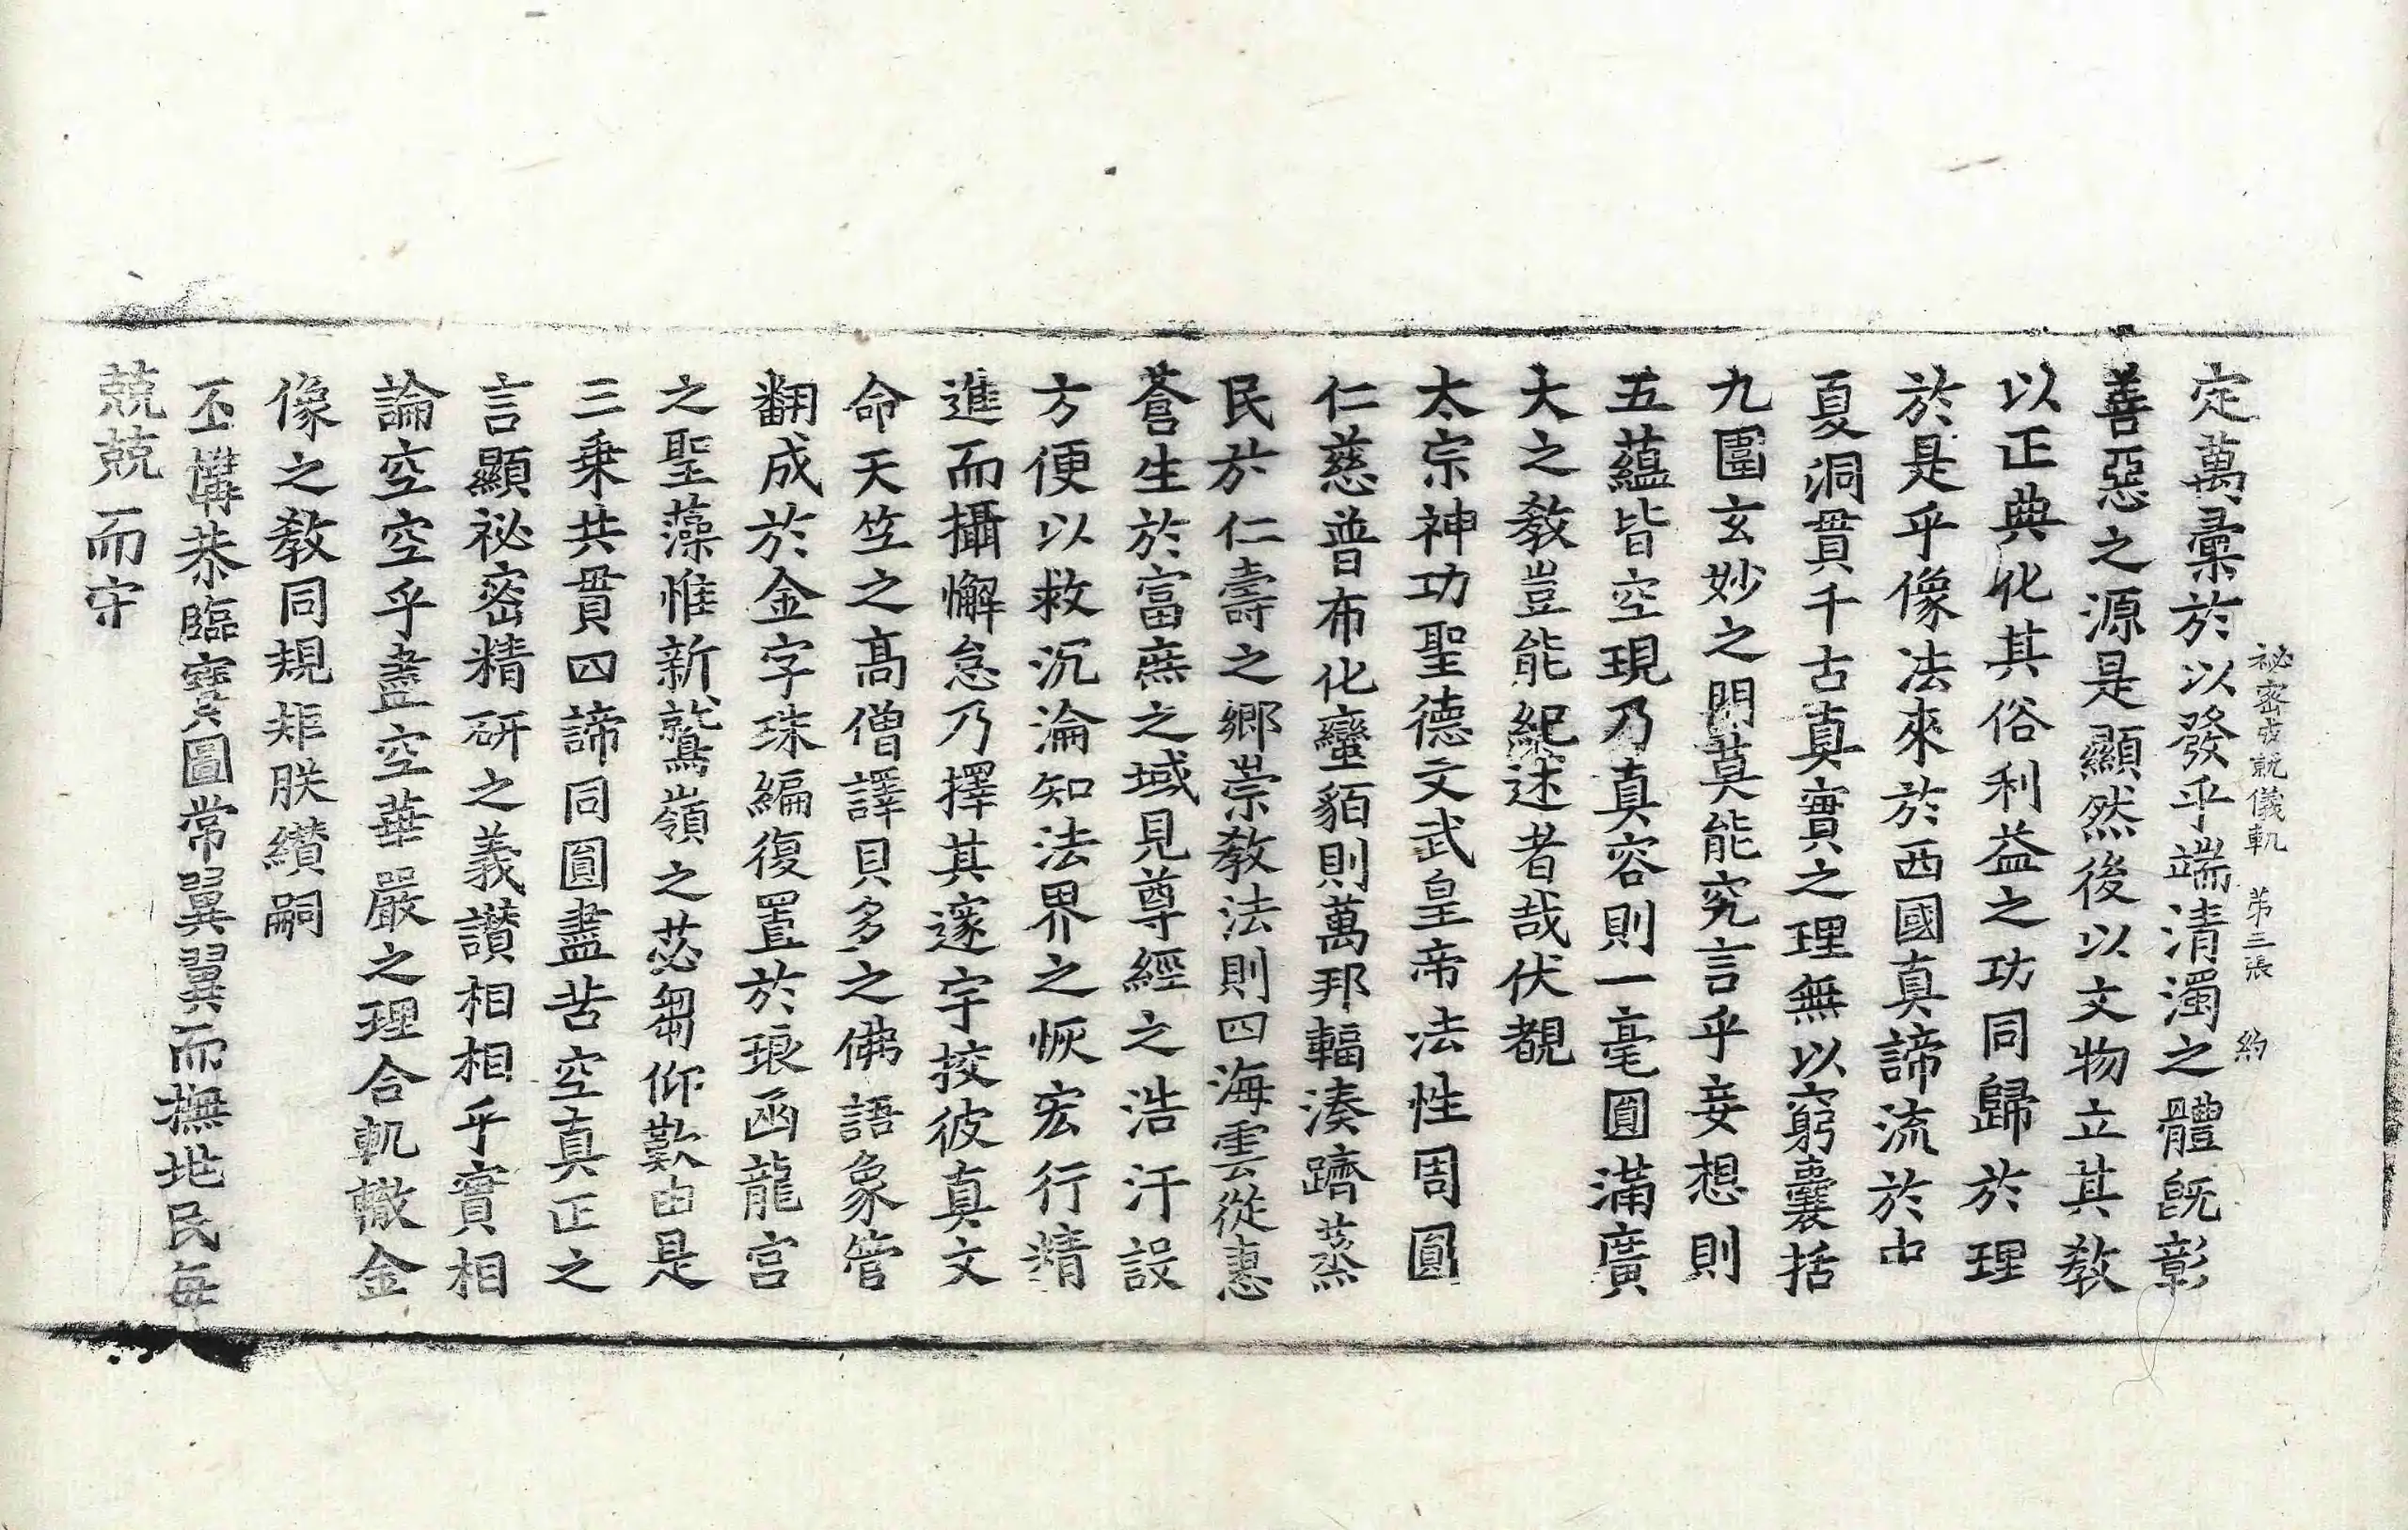 祕密成就儀軌 第三張 約
定萬彙於以發乎端清濁之體既彰
善惡之源是顯然後以文物立其教
以正典化其俗利益之功同歸於理
於是乎像法來於西國真諦流於中
夏洞貫千古真實之理無以窮囊括
九圍玄妙之門莫能究言乎妄想則
五蘊皆空現乃真容則一毫圓滿廣
大之教豈能紀述者哉伏覩
太宗神功聖德文武皇帝法性周圓
仁慈普布化蠻貊則萬邦輻湊躋蒸
民於仁壽之鄉崇教法則四海雲從惠
蒼生於富庶之域見尊經之浩汗設
方便以救沉淪知法界之恢宏行精
進而攝懈怠乃擇其邃宇挍彼真文
命天竺之高僧譯貝多之佛語象管
翻成於金字珠編復置於琅函龍宮
之聖藻惟新鷲嶺之苾芻仰歎由是
三乗共貫四諦同圓盡苦空真正之
言顯祕密精研之義讃相相乎實相
論空空乎盡空華嚴之理合軌轍金
像之教同規矩朕纘嗣
丕構恭臨寶圖常翼翼而撫㘯民每
兢兢而守